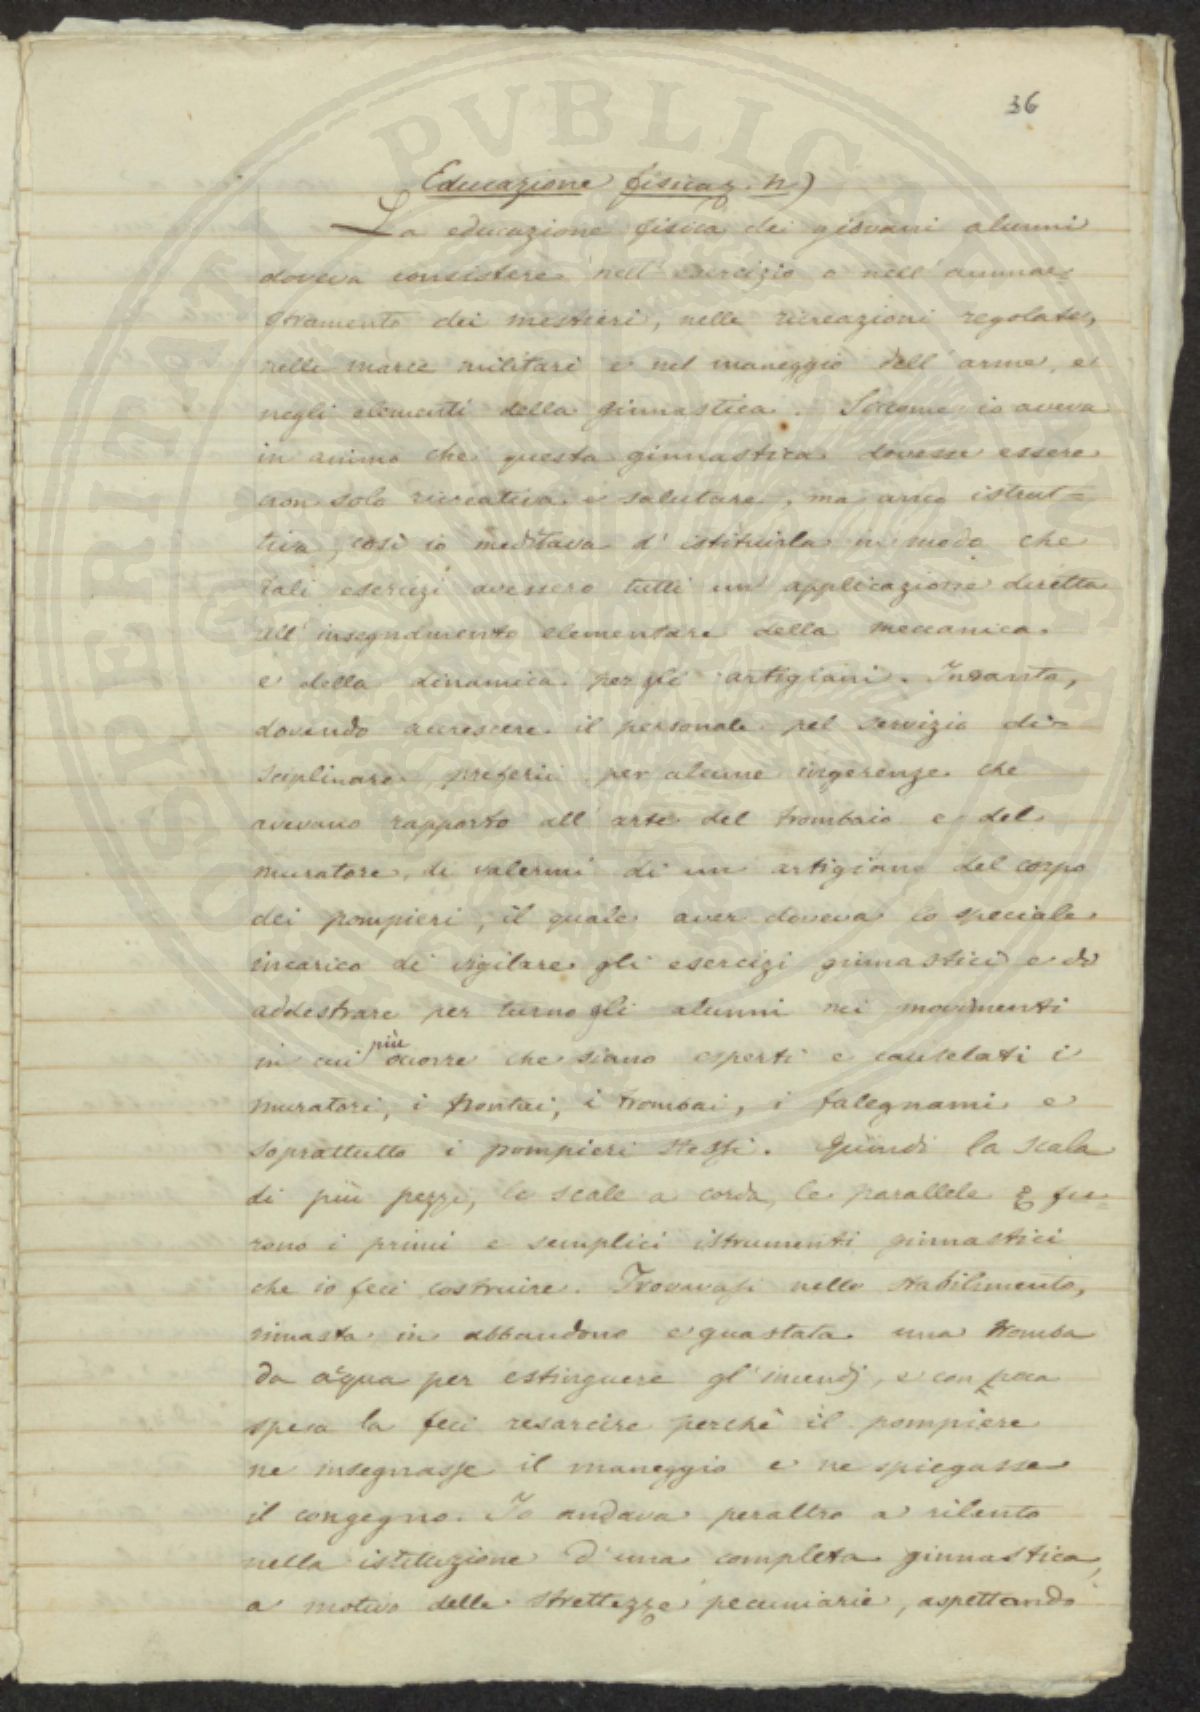 36
Educazione fisica
La educazione fisica dei giovani alunni
doveva consistere nell'esercizio o nell'ammae-
stramento dei mestieri, nelle ricreazioni regolate,
nelle marce militari e nel maneggio dell'arme, e
negli elementi della ginnastica. Siccome io aveva
in animo che questa ginnastica dovesse essere
non solo ricreativa e salutare, ma anco istrut-
tiva, così io meditava d'istituirla in modo che
tali esercizi avessero tutti un'applicazione diretta
all'insegnamento elementare della meccanica
e della dinamica per gli artigiani. Intanto,
dovendo accrescere il personale pel servizio di-
sciplinare, preferii per alcune ingerenze che
avevano rapporto all'arte del trombaio e del
muratore, di valermi di un artigiano del corpo
dei pompieri, il quale aver doveva lo speciale
incarico di vigilare gli esercizi ginnastici e di
addestrare per turno gli alunni nei movimenti
in cui più occorre che siano esperti e cautelati i
muratori, i trombai, i falegnami e
soprattutto i pompieri stessi. Quindi la scala
di più pezzi, le scale a corda, le parallele fu-
rono i primi e semplici istrumenti ginnastici
che io feci costruire. Trovavasi nello stabilimento,
rimasta in abbandono e guastata una tromba
da acqua per estinguere gl'incendj, e con poca
spesa la feci resarcire perchè il pompiere
ne insegnasse il maneggio e ne spiegasse
il congegno. Io andava peraltro a rilento
nella istituzione d'una completa ginnastica,
a motivo delle strettezze pecuniarie, aspettando
PVBLICAE
PROSPERITATI